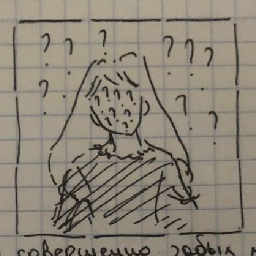 ? ? ? ? ? ?
? ? ?
? ? ? ? ? ?
совершенно забыл